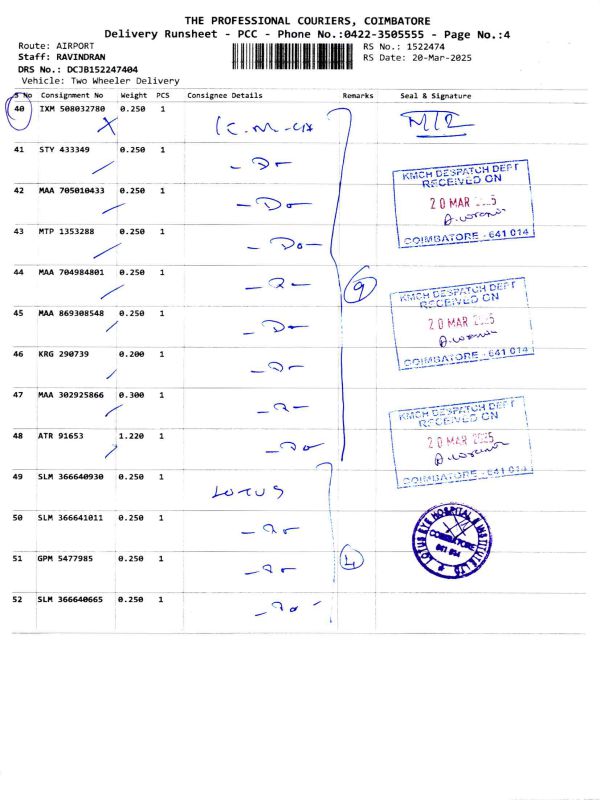 THE PROFESSIONAL COURIERS, COIMBATORE
Delivery Runsheet - PCC - Phone No.:0422-3505555 - Page No.:4
Route: AIRPORT
RS No.: 1522474
Staff: RAVINDRAN
RS Date: 20-Mar-2025
DRS No.: DCJB152247404
Vehicle: Two Wheeler Delivery
S No Consignment No Weight PCS Consignee Details Remarks Seal & Signature
40 IXM 508032780 0.250 1
41 STY 433349 0.250 1 - Do -
KMCH DESPATCH DEPT
RECEIVED ON
42 MAA 705010433 0.250 1 - Do -
20 MAR
43 MTP 1353288 0.250 1 - Do -
COIMBATORE - 641 014
44 MAA 704984801 0.250 1
9
KMCH DESPATCH DEPT
RECEIVED ON
45 MAA 869308548 0.250 1 - Do -
20 MAR
46 KRG 290739 0.200 1 - Do -
COIMBATORE - 641 014
47 MAA 302925866 0.300 1
KMCH DESPATCH DEPT
RECEIVED ON
48 ATR 91653 1.220 1 - Do
20 MAR 2025
COIMBATORE - 641 014
49 SLM 366640930 0.250 1 LOTUS
50 SLM 366641011 0.250 1
LOTUS EYE HOSPITAL & INSTITUTE LTD
COIMBATORE
641 014
51 GPM 5477985 0.250 1
4
52 SLM 366640665 0.250 1